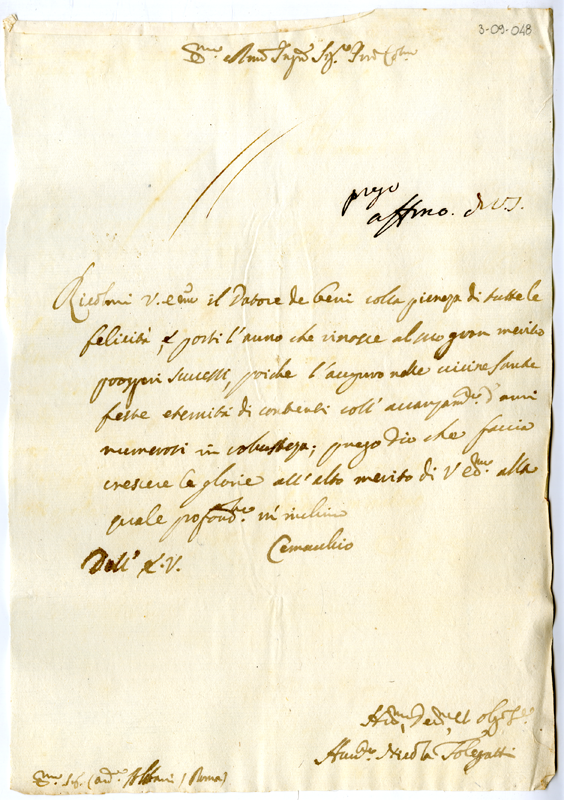 3-09-048
Em.mo e Rmo Sig.r
prego
affmo. di V.S.
Ricolmi V. Em. il Datore de beni colla pienezza di tutte le
felicità, e porti l'anno che rinasce al suo gran merito
prosperi successi, poiche l'auguro nelle vicine sante
feste eternità di contenti coll' avanzam.to d'anni
numerosi in robustezza; prego Dio che faccia
crescere le glorie all'alto merito di V. Em. alla
quale profond.te m'inchino
Comacchio
Dell' E.V.
Hum.mo Dev.mo et Obl.mo Se.
Nicola
Em.mo Sig. Card. Albani / Roma)